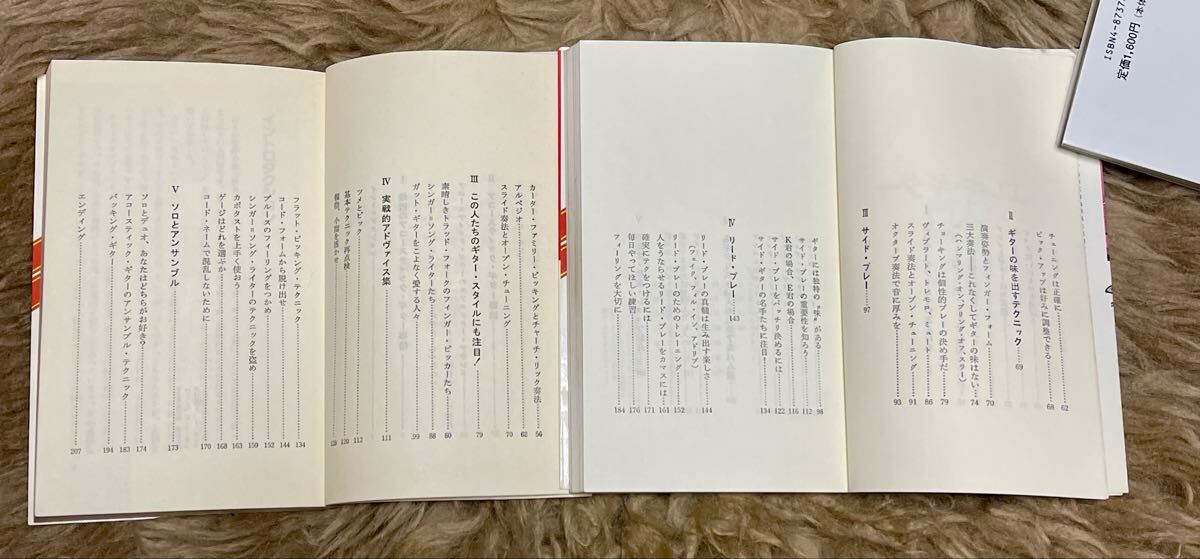 カーター・ファミリー・ピッキングとチャーチ・リック奏法 56
アルペジオ 62
スライド奏法とオープン・チューニング 70
III この人たちのギター・スタイルにも注目! 79
素晴しきトラッド・フォークのフィンガー・ピッカーたち 80
シンガー=ソング・ライターたち 88
ガット・ギターをこよなく愛する人々 99
IV 実戦的アドヴァイス集 111
ツメとピック 112
基本テクニック再点検 120
フラット・ピッキング・テクニック 134
コード・フォームから脱け出せ 144
ブルースのフィーリングをつかめ 152
シンガー=ソング・ライターのテクニックを盗め 159
カポタストを上手く使おう 163
ゲージはどれを選ぶか 168
コード・ネームで混乱しないために 170
V ソロとアンサンブル 173
ソロとデュオ、あなたはどちらがお好き? 174
アコースティック・ギターのアンサンブル・テクニック 183
バッキング・ギター 194
エンディング 207
チューニングは正確に 62
ピック・アップは好みに調整できる 68
II ギターの味を出すテクニック 69
演奏姿勢とフィンガー・フォーム 70
三大奏法——これなくしてギターの味はない 74
(ハンマリング・オン、プリング・オフ、スラー)
チョーキングは個性的プレーの決め手だ 79
ヴィブラート、トレモロ、ミュート 86
スライド奏法とオープン・チューニング 91
オクターブ奏法で音に厚みを 93
III サイド・プレー 97
ギターには独特の“味”がある 98
サイド・プレーの重要性を知ろう 112
K君の場合、E君の場合 116
サイド・プレーをバッチリ決めるには 122
サイド・ギターの名手たちに注目! 134
IV リード・プレー 143
リード・プレーの真髄は生み出す楽しさ 144
(フェイク、フィル・イン、アドリブ)
リード・プレーのためのトレーニング 152
人をうならせるリード・プレーをカマスには 161
確実にテクをつけるには 171
毎日やってほしい練習 176
フィーリングを大切に 184
ISBN4-8737
定価1,600円(本体